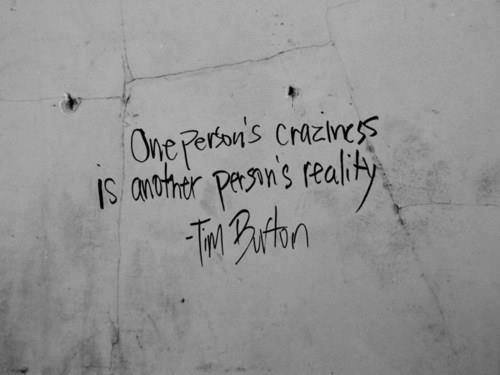 One person's craziness
is another person's reality
-Tim Burton